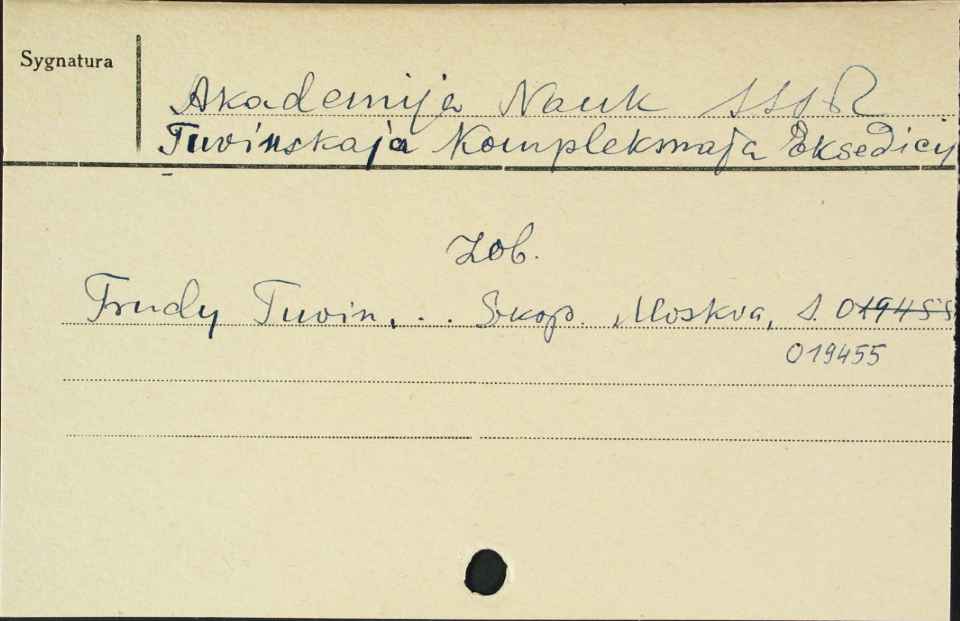 Sygnatura
Akademija Nauk SSSR
Tuvinskaja Kompleksnaja Eksedicij
Zob.
Trudy Tuvin. . . Moskva, S. 019455
019455